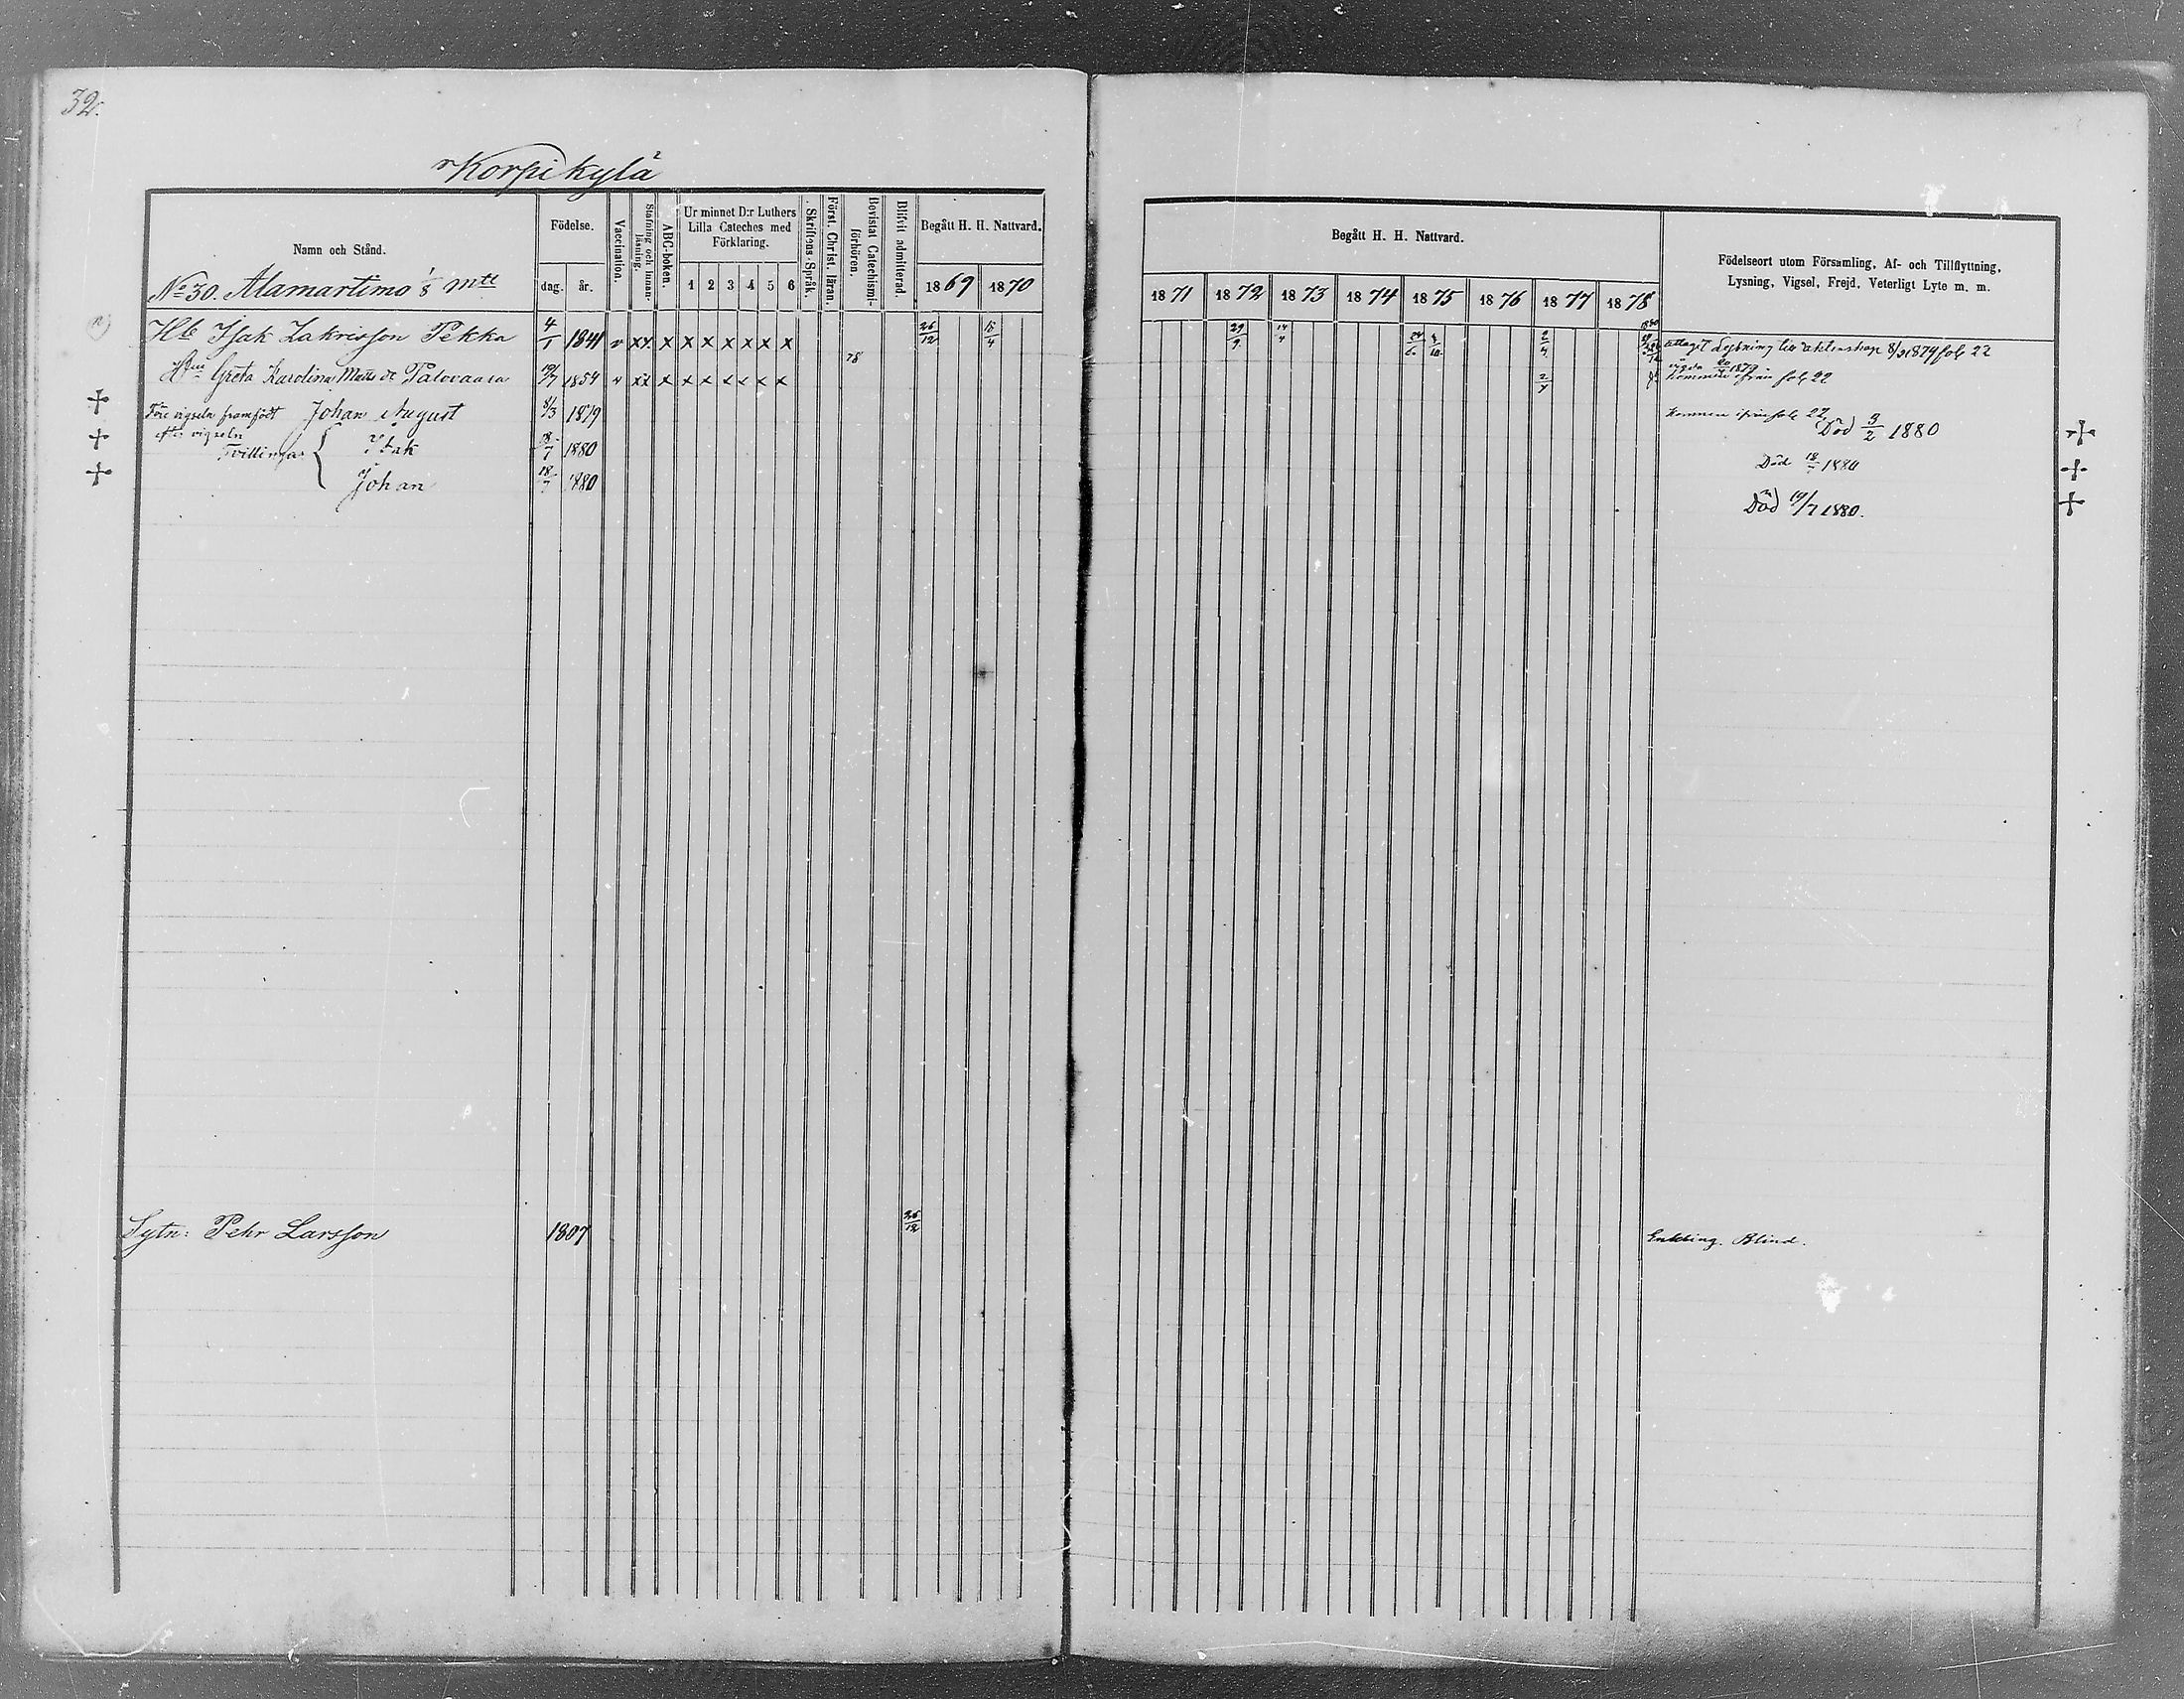 32.
Korpikylä
Namn och Stånd.
Födelse.
dag.
år.
Vaccination.
Stafning och innanläsning.
ABC-boken.
Ur minnet D:r Luthers Lilla Cateches med Förklaring.
1 2 3 4 5 6
Skriftens Språk.
Först. Christ. läran.
Bevistat Catechismi-förhören.
Blifvit admitterad.
Begått H. H. Nattvard.
1869 1870
Begått H. H. Nattvard.
1871 1872 1873 1874 1875 1876 1877 1878
Födelseort utom Församling, Af- och Tillflyttning,
Lysning, Vigsel, Frejd, Veterligt Lyte m. m.
No 30. Alamartimo 1/8 mtl
Hb Isak Zakrisson Pekka 4/1 1841 v xx x x x x x x x 26/12 15/4 29/9 14/4 2/4 1880 uttagit Lysning till äktenskap 8/3 1879 fol 22
Greta Karolina Matts dr Palovaara 1854 v xx x x x x x x x 78 2/4 Kommen ifrån fol 22
Före vigseln framfödt Johan August 8/3 1879 Kommen ifrån fol 22 Död 3/2 1880
efter vigseln
Tvillingar { Isak 18/7 1880 Död 18/7 1880
Johan 18/7 1880 Död 19/7 1880.
Sytn: Pehr Larsson 1807 26/12 Enkling. Blind.